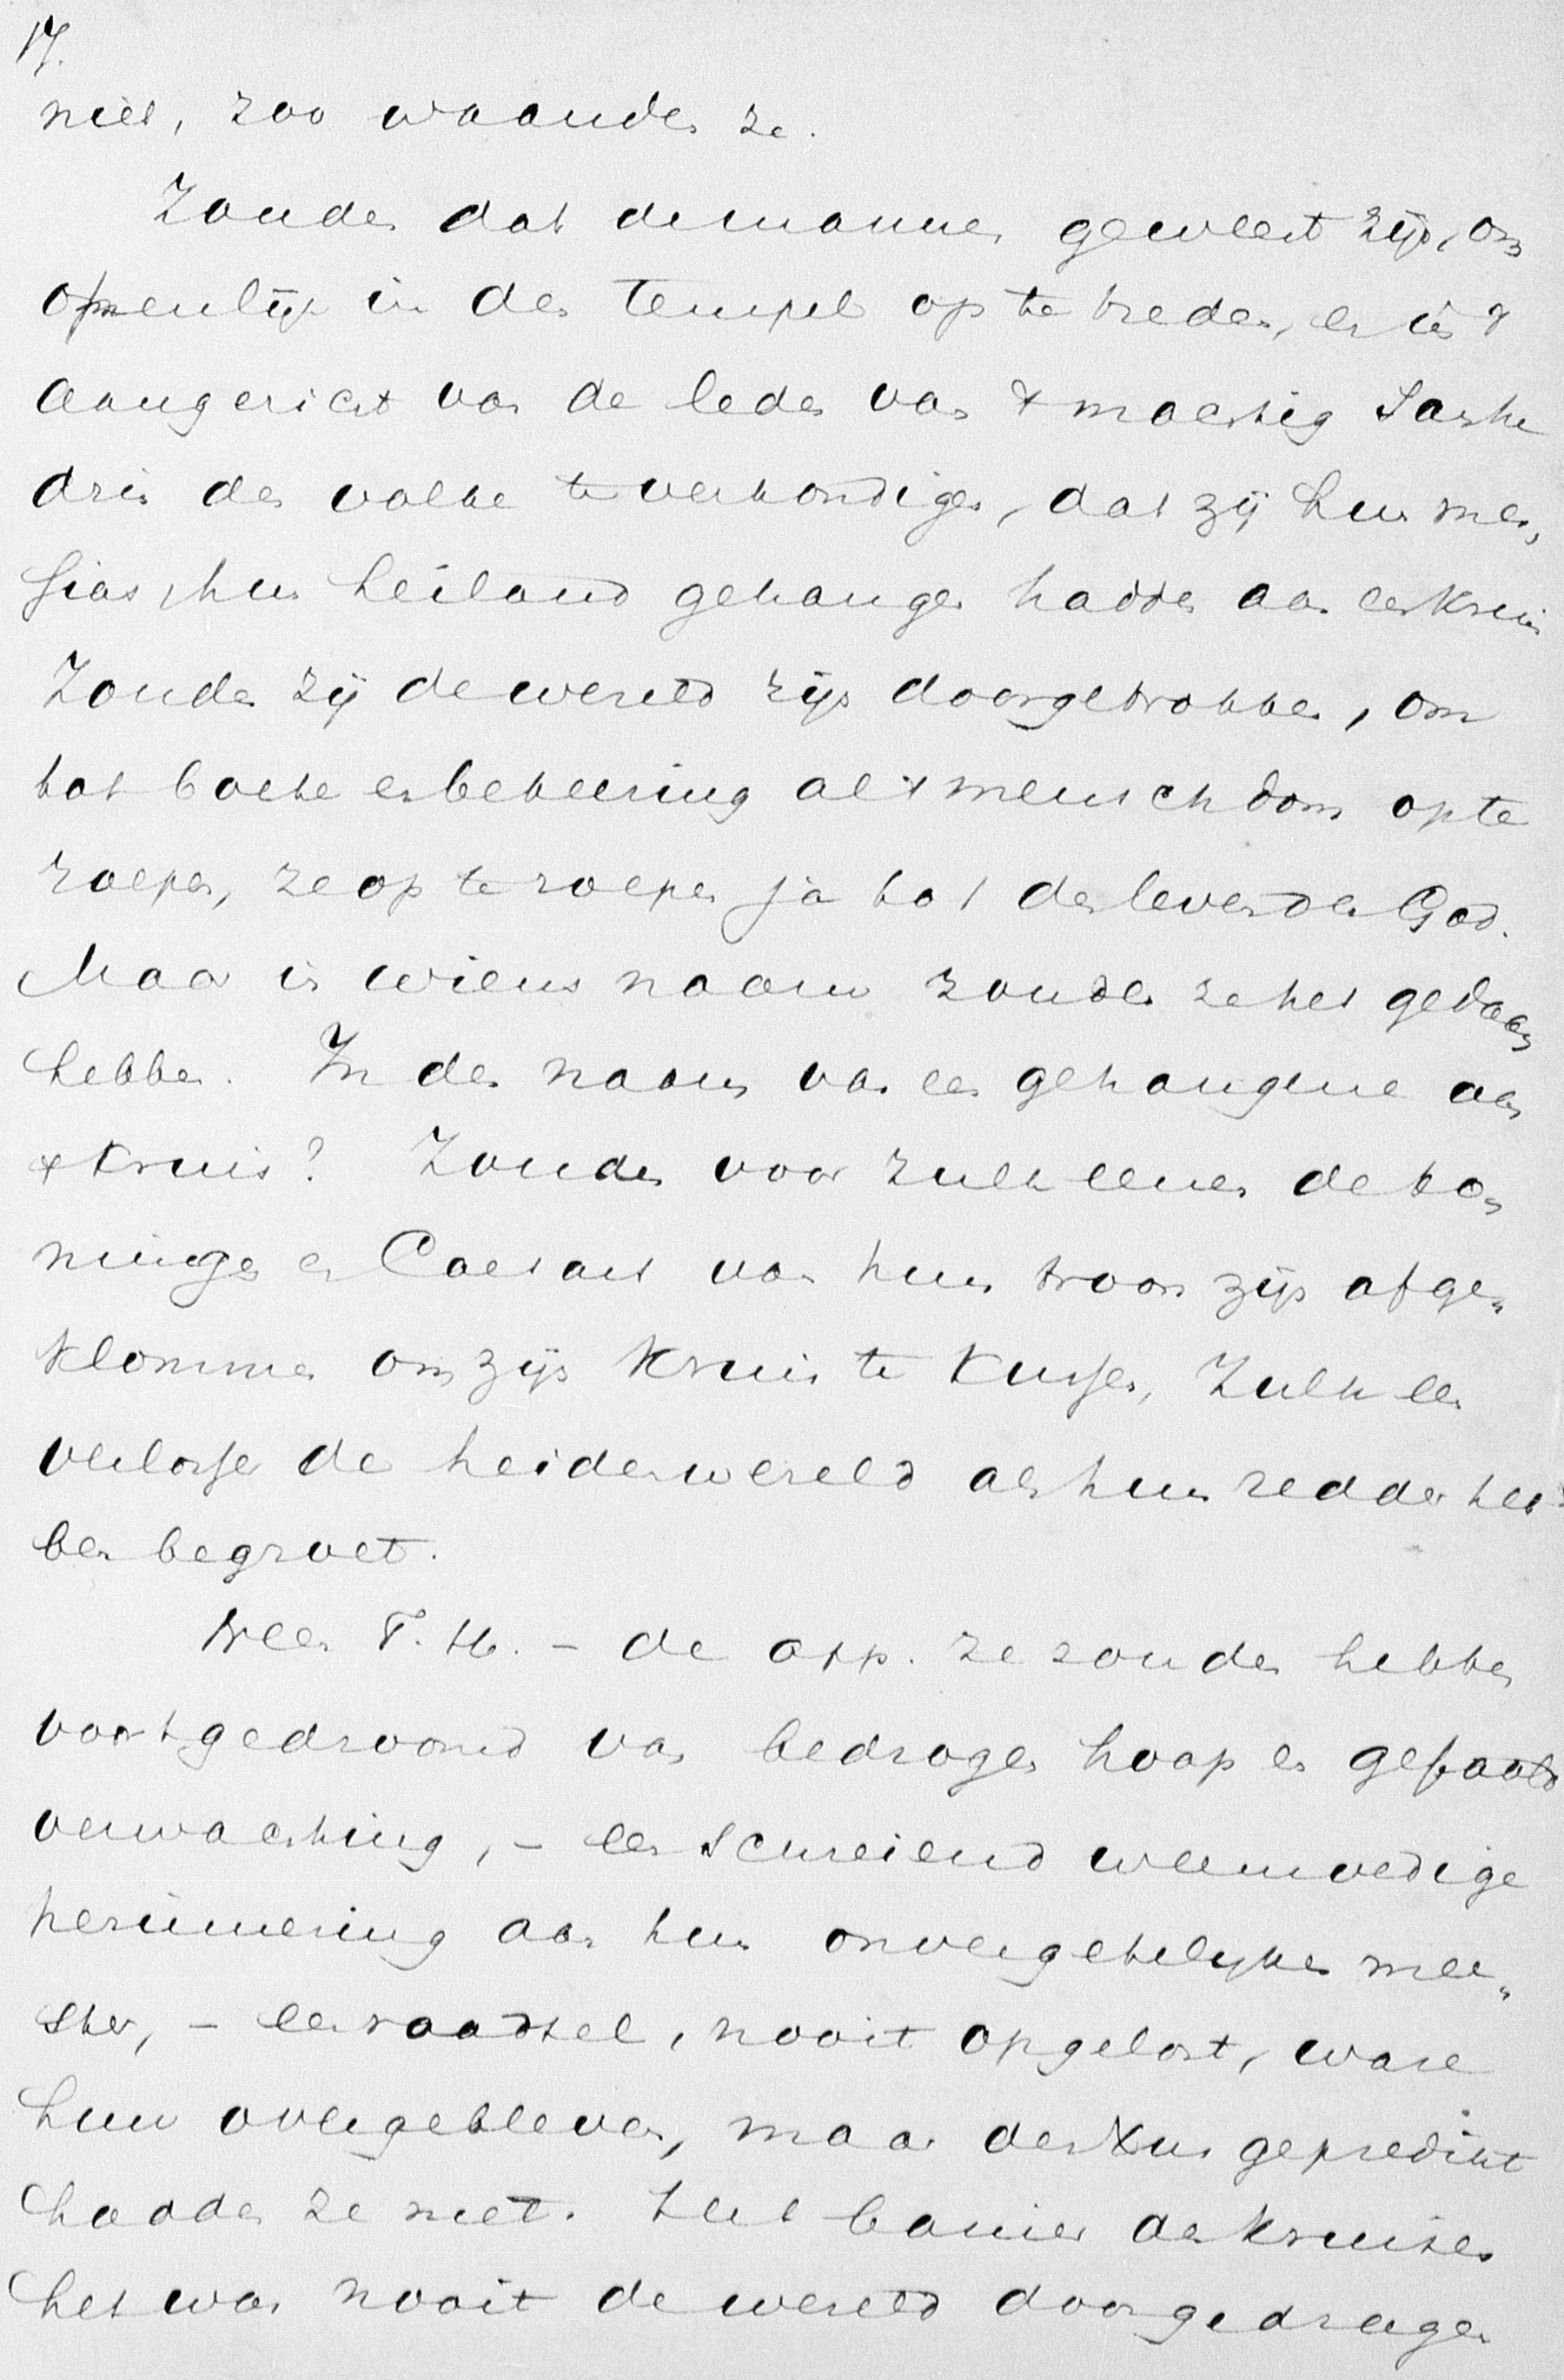 17.
niet, zoo waanden ze.
Zouden dat de mannen geweest zijn, om
openlijk in den tempel op te treden, en in 't
aangezicht van de leden van 't machtig Sanhe
drin den volke te verkondigen, dat zij hun mes„
sias, hun heiland gehangen hadden aan een kruis
Zouden zij de wereld zijn doorgetrokken, om
tot boete en bekeering al 't menschdom op te
roepen, ze op te roepen ja tot den levenden God.
Maar in wiens naam zouden ze het gedaan
hebben. In den naam van een gehangene aan
't kruis? Zouden voor zulk eenen de ko„
ningen en Caesars van hun troon zijn afge„
klommen om zijn kruis te kussen, Zulk een
verlosser de heidenwereld als hun redder heb
ben begroet.
Neen T. H. – de app. ze zouden hebben
voortgedroomd van bedrogen hoop en gefaald
verwachting, – een schreiend weemoedige
herinnering aan hun onvergetelijken mee„
ster, – een raadsel, nooit opgelost, ware
hun overgebleven, maar den Xus gepredikt
hadden ze niet. Het banier des kruises
het was nooit de wereld doorgedragen